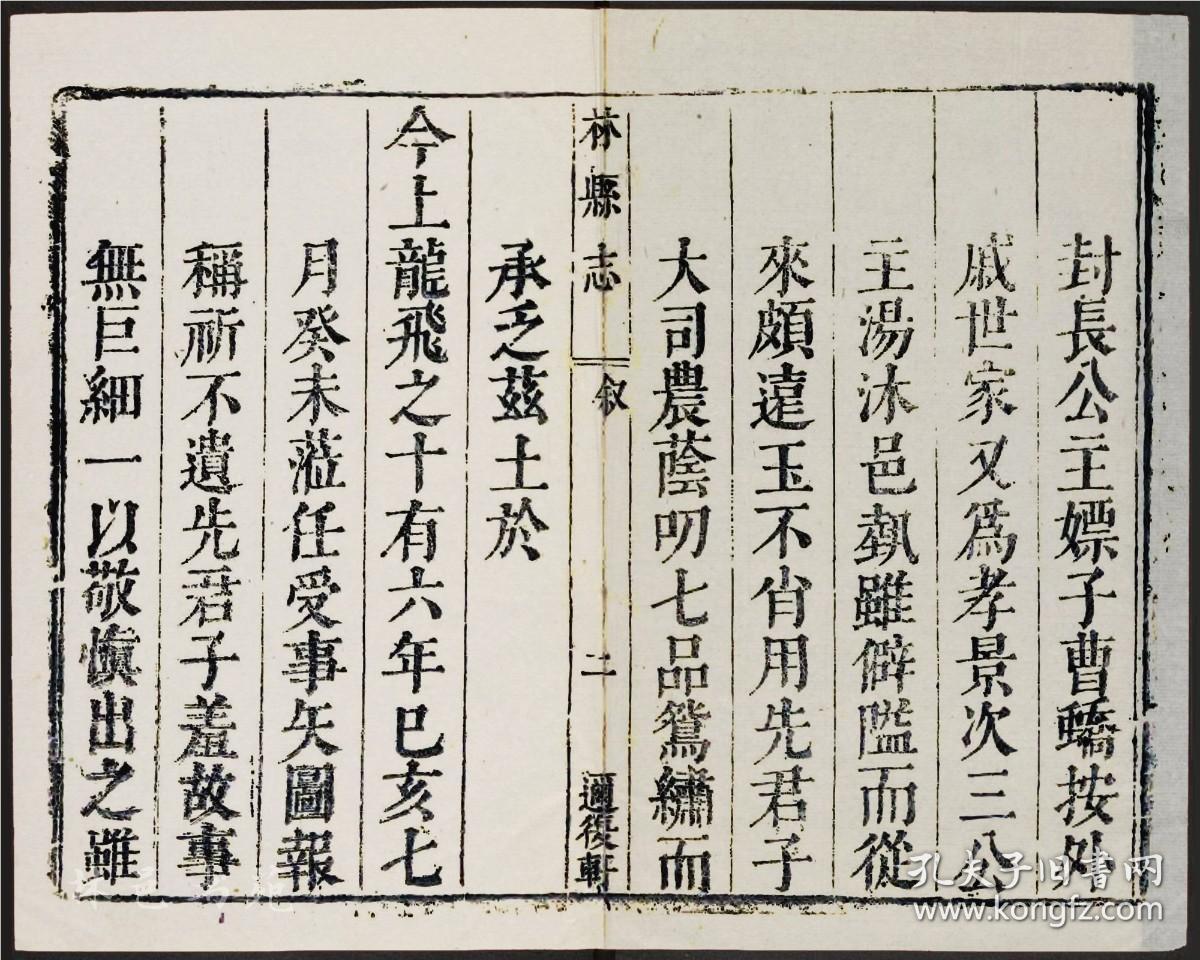 封長公主嫖子曹蟜按外
戚世家又爲孝景次三公
主湯沐邑埶雖僻隘而從
來頗遠玉不肖用先君子
大司農蔭叨七品鴛繡而
承乏茲土於
林縣志 叙 二 邇復軒
今上龍飛之十有六年巳亥七
月癸未蒞任受事矢圖報
稱祈不遺先君子羞故事
無巨細一以敬慎出之雖
孔夫子旧书网
www.kongfz.com